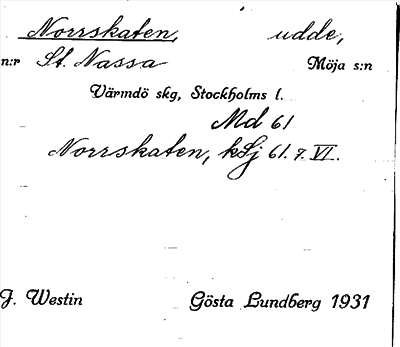 Norrskaten, udde,
n:r St. Nassa Möja s:n
Värmdö skg, Stockholms l.
Md 61
Norrskaten, kSj 61. 7. VI.
J. Westin Gösta Lundberg 1931